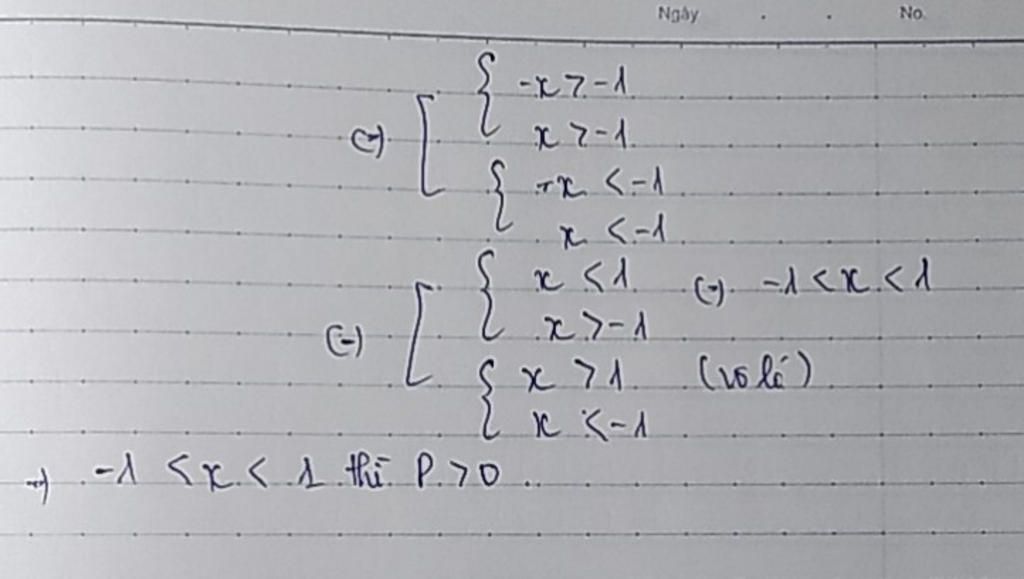 Ngày . . No.
-x > -1
(-) x > -1
-x < -1
x < -1
x < 1 (-) -1 < x < 1
(-) x > -1
x > 1 (vô lí)
x < -1
→ -1 < x < 1 thì P > 0